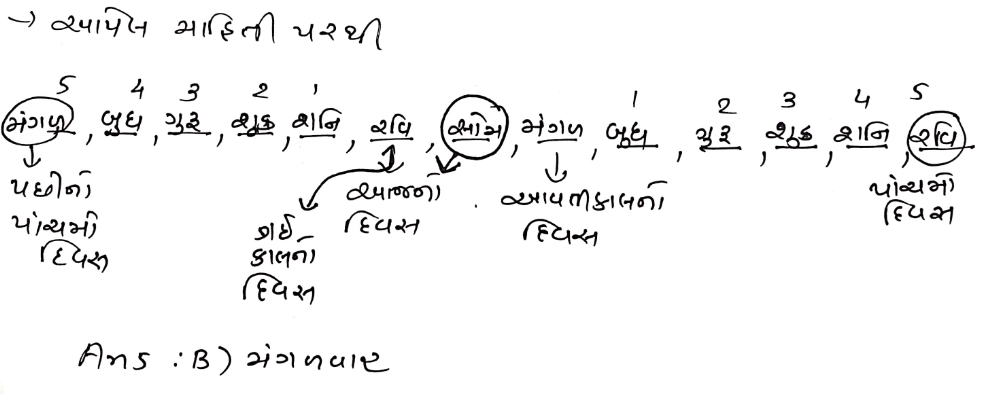 → આપેલ માહિતી પરથી
5 4 3 2 1 1 2 3 4 5
મંગળ, બુધ, ગુરૂ, શુક્ર, શનિ, રવિ, સોમ, મંગળ, બુધ, ગુરૂ, શુક્ર, શનિ, રવિ
પછીનો આજનો આવતીકાલનો પાંચમો
પાંચમો ગઈ દિવસ દિવસ દિવસ
દિવસ કાલનો
દિવસ
Ans : B) મંગળવાર